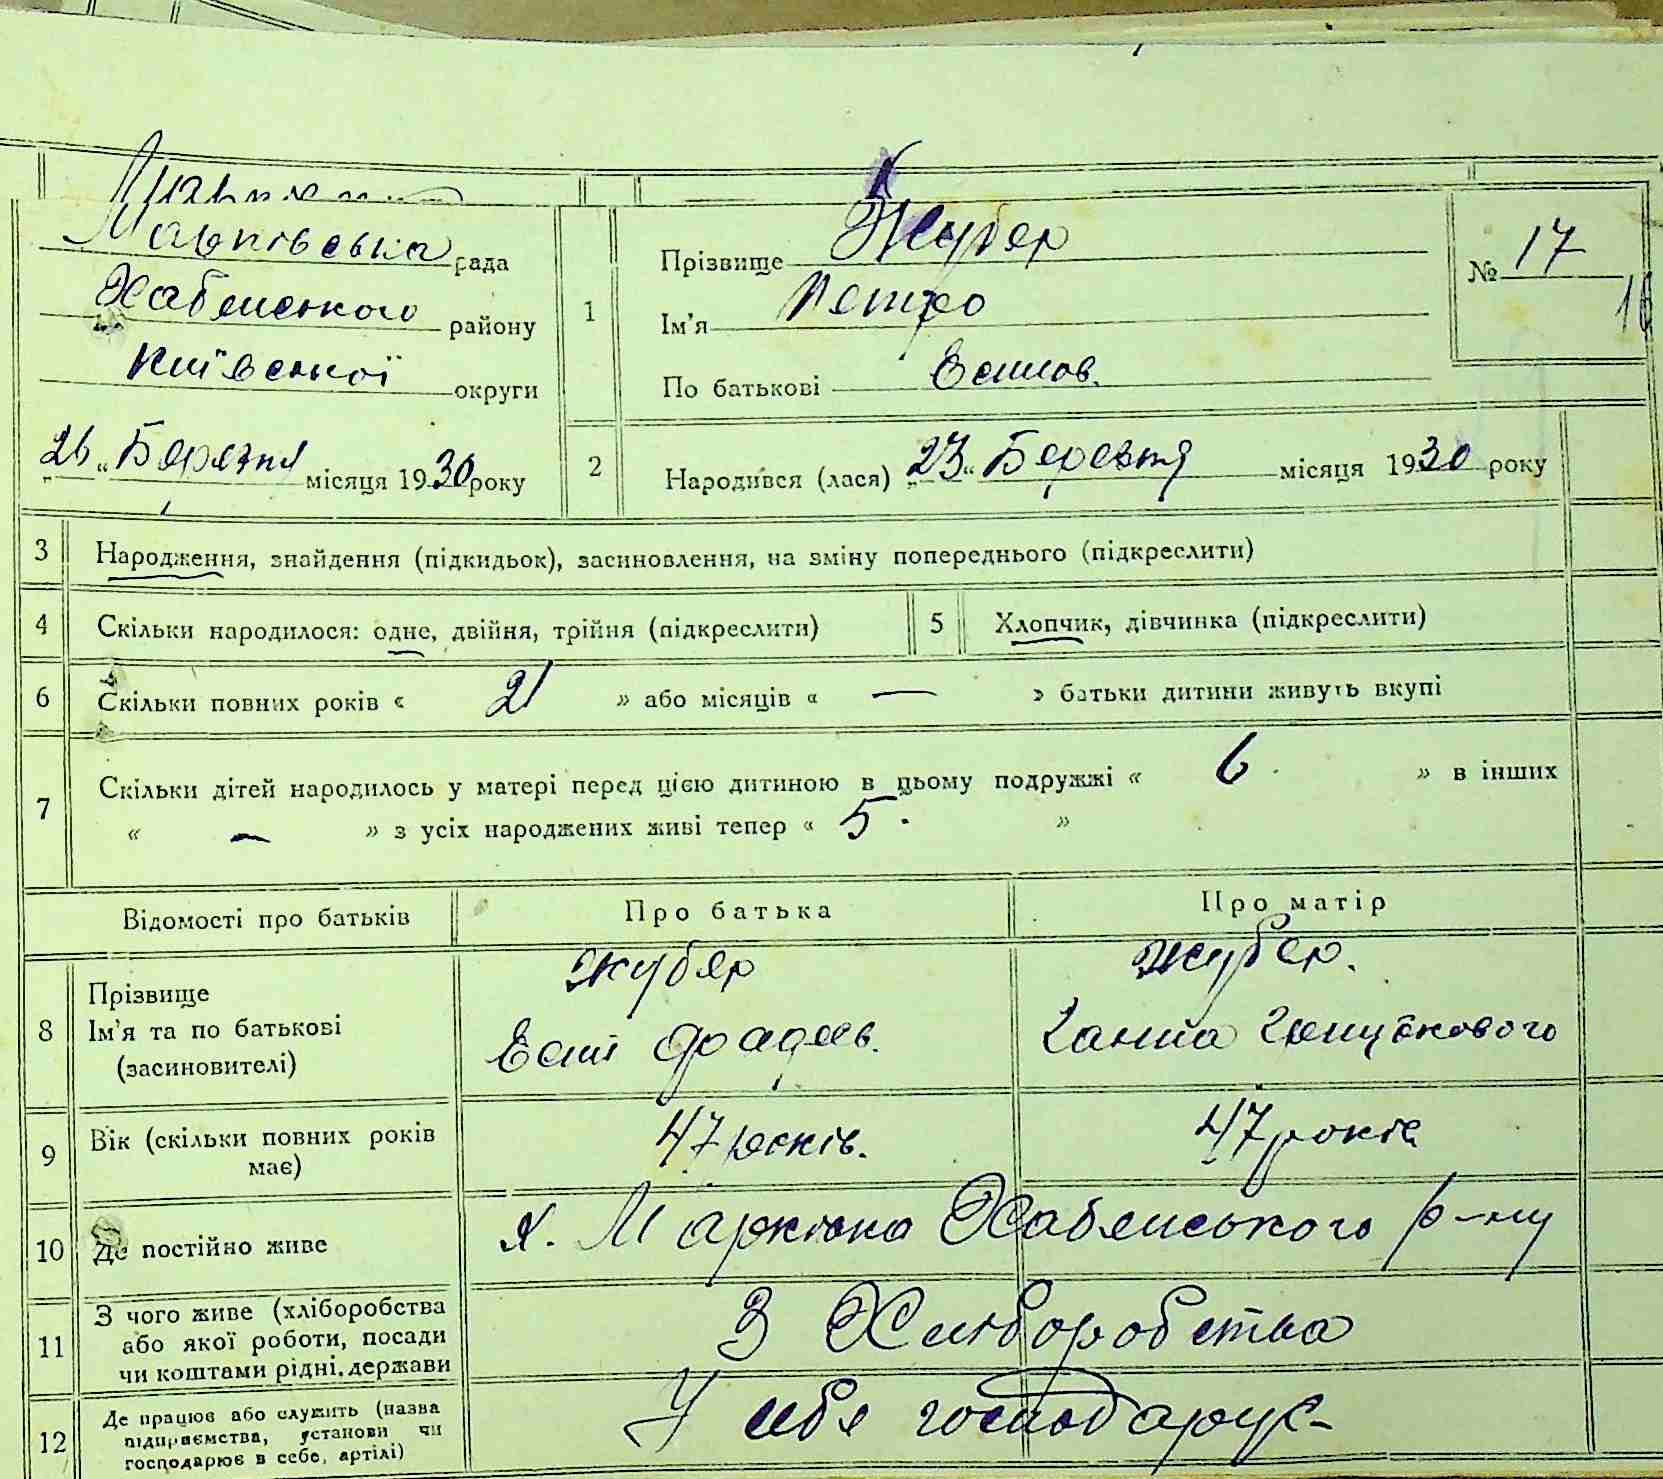 Марківська рада
Хабенського району
Київської округи
"26" Березня місяця 1930 року
1
Прізвище Жубер
Ім'я Петро
По батькові Есипов.
№ 17
16
2
Народився (лася) "23" Березня місяця 1930 року
3 Народження, знайдення (підкидьок), засиновлення, на зміну попереднього (підкреслити)
4 Скільки народилося: одне, двійня, трійня (підкреслити)
5 Хлопчик, дівчинка (підкреслити)
6 Скільки повних років « 21 » або місяців « — » батьки дитини живуть вкупі
7 Скільки дітей народилось у матері перед цією дитиною в цьому подружжі « 6 » в інших
« — » з усіх народжених живі тепер « 5. »
Відомості про батьків
Про батька
Про матір
8
Прізвище
Ім'я та по батькові
(засиновителі)
Жубер
Жубер.
Ганна
9
Вік (скільки повних років
має)
47 років.
47 років
10 Де постійно живе
х. Марківка Хабенського р-ну
11
З чого живе (хліборобства
або якої роботи, посади
чи коштами рідні, держави
З Хліборобства
12
Де працює або служить (назва
підприємства, установи чи
господарює в себе, артілі)
У себе господарує